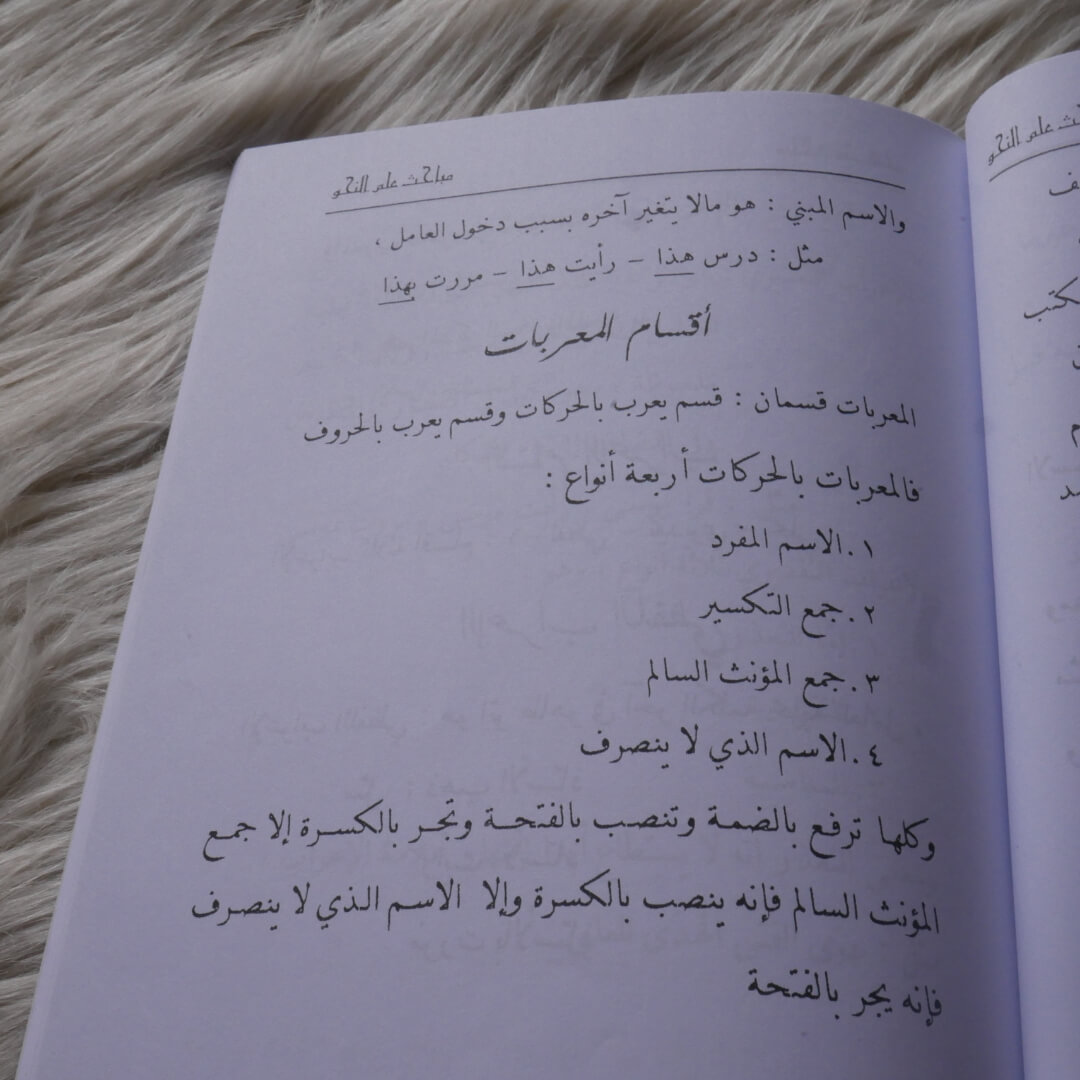 مباحث علم النحو
والاسم المبني : هو مالا يتغير آخره بسبب دخول العامل ،
مثل : درس هذا – رأيت هذا – مررت بهذا
أقسام المعربات
المعربات قسمان : قسم يعرب بالحركات وقسم يعرب بالحروف
فالمعربات بالحركات أربعة أنواع :
١. الاسم المفرد
٢. جمع التكسير
٣. جمع المؤنث السالم
٤. الاسم الذي لا ينصرف
وكلها ترفع بالضمة وتنصب بالفتحة وتجر بالكسرة إلا جمع
المؤنث السالم فإنه ينصب بالكسرة وإلا الاسم الذي لا ينصرف
فإنه يجر بالفتحة
علم النحو